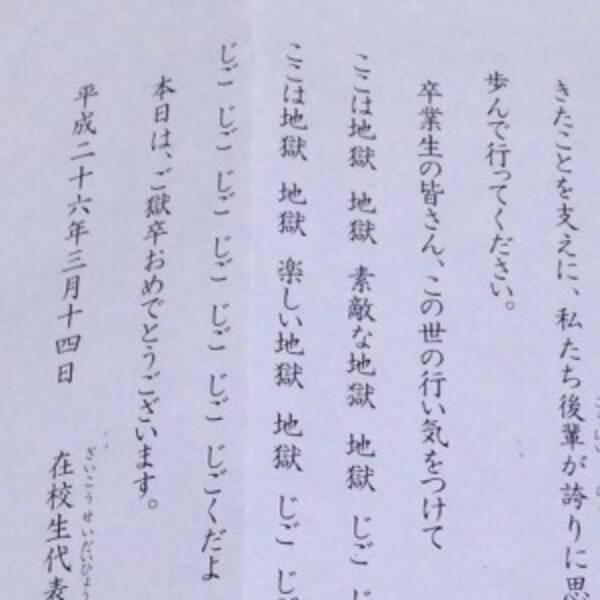 きたことを支えに、私たち後輩が誇りに思
歩んで行ってください。
卒業生の皆さん、この世の行い気をつけて
ここは地獄 地獄 素敵な地獄 地獄 じご
ここは地獄 地獄 楽しい地獄 地獄 じご じ
じご じご じご じご じご じご じごくだよ
本日は、ご獄卒おめでとうございます。
平成二十六年三月十四日
在校生代表
ざいこうせいだいひょう